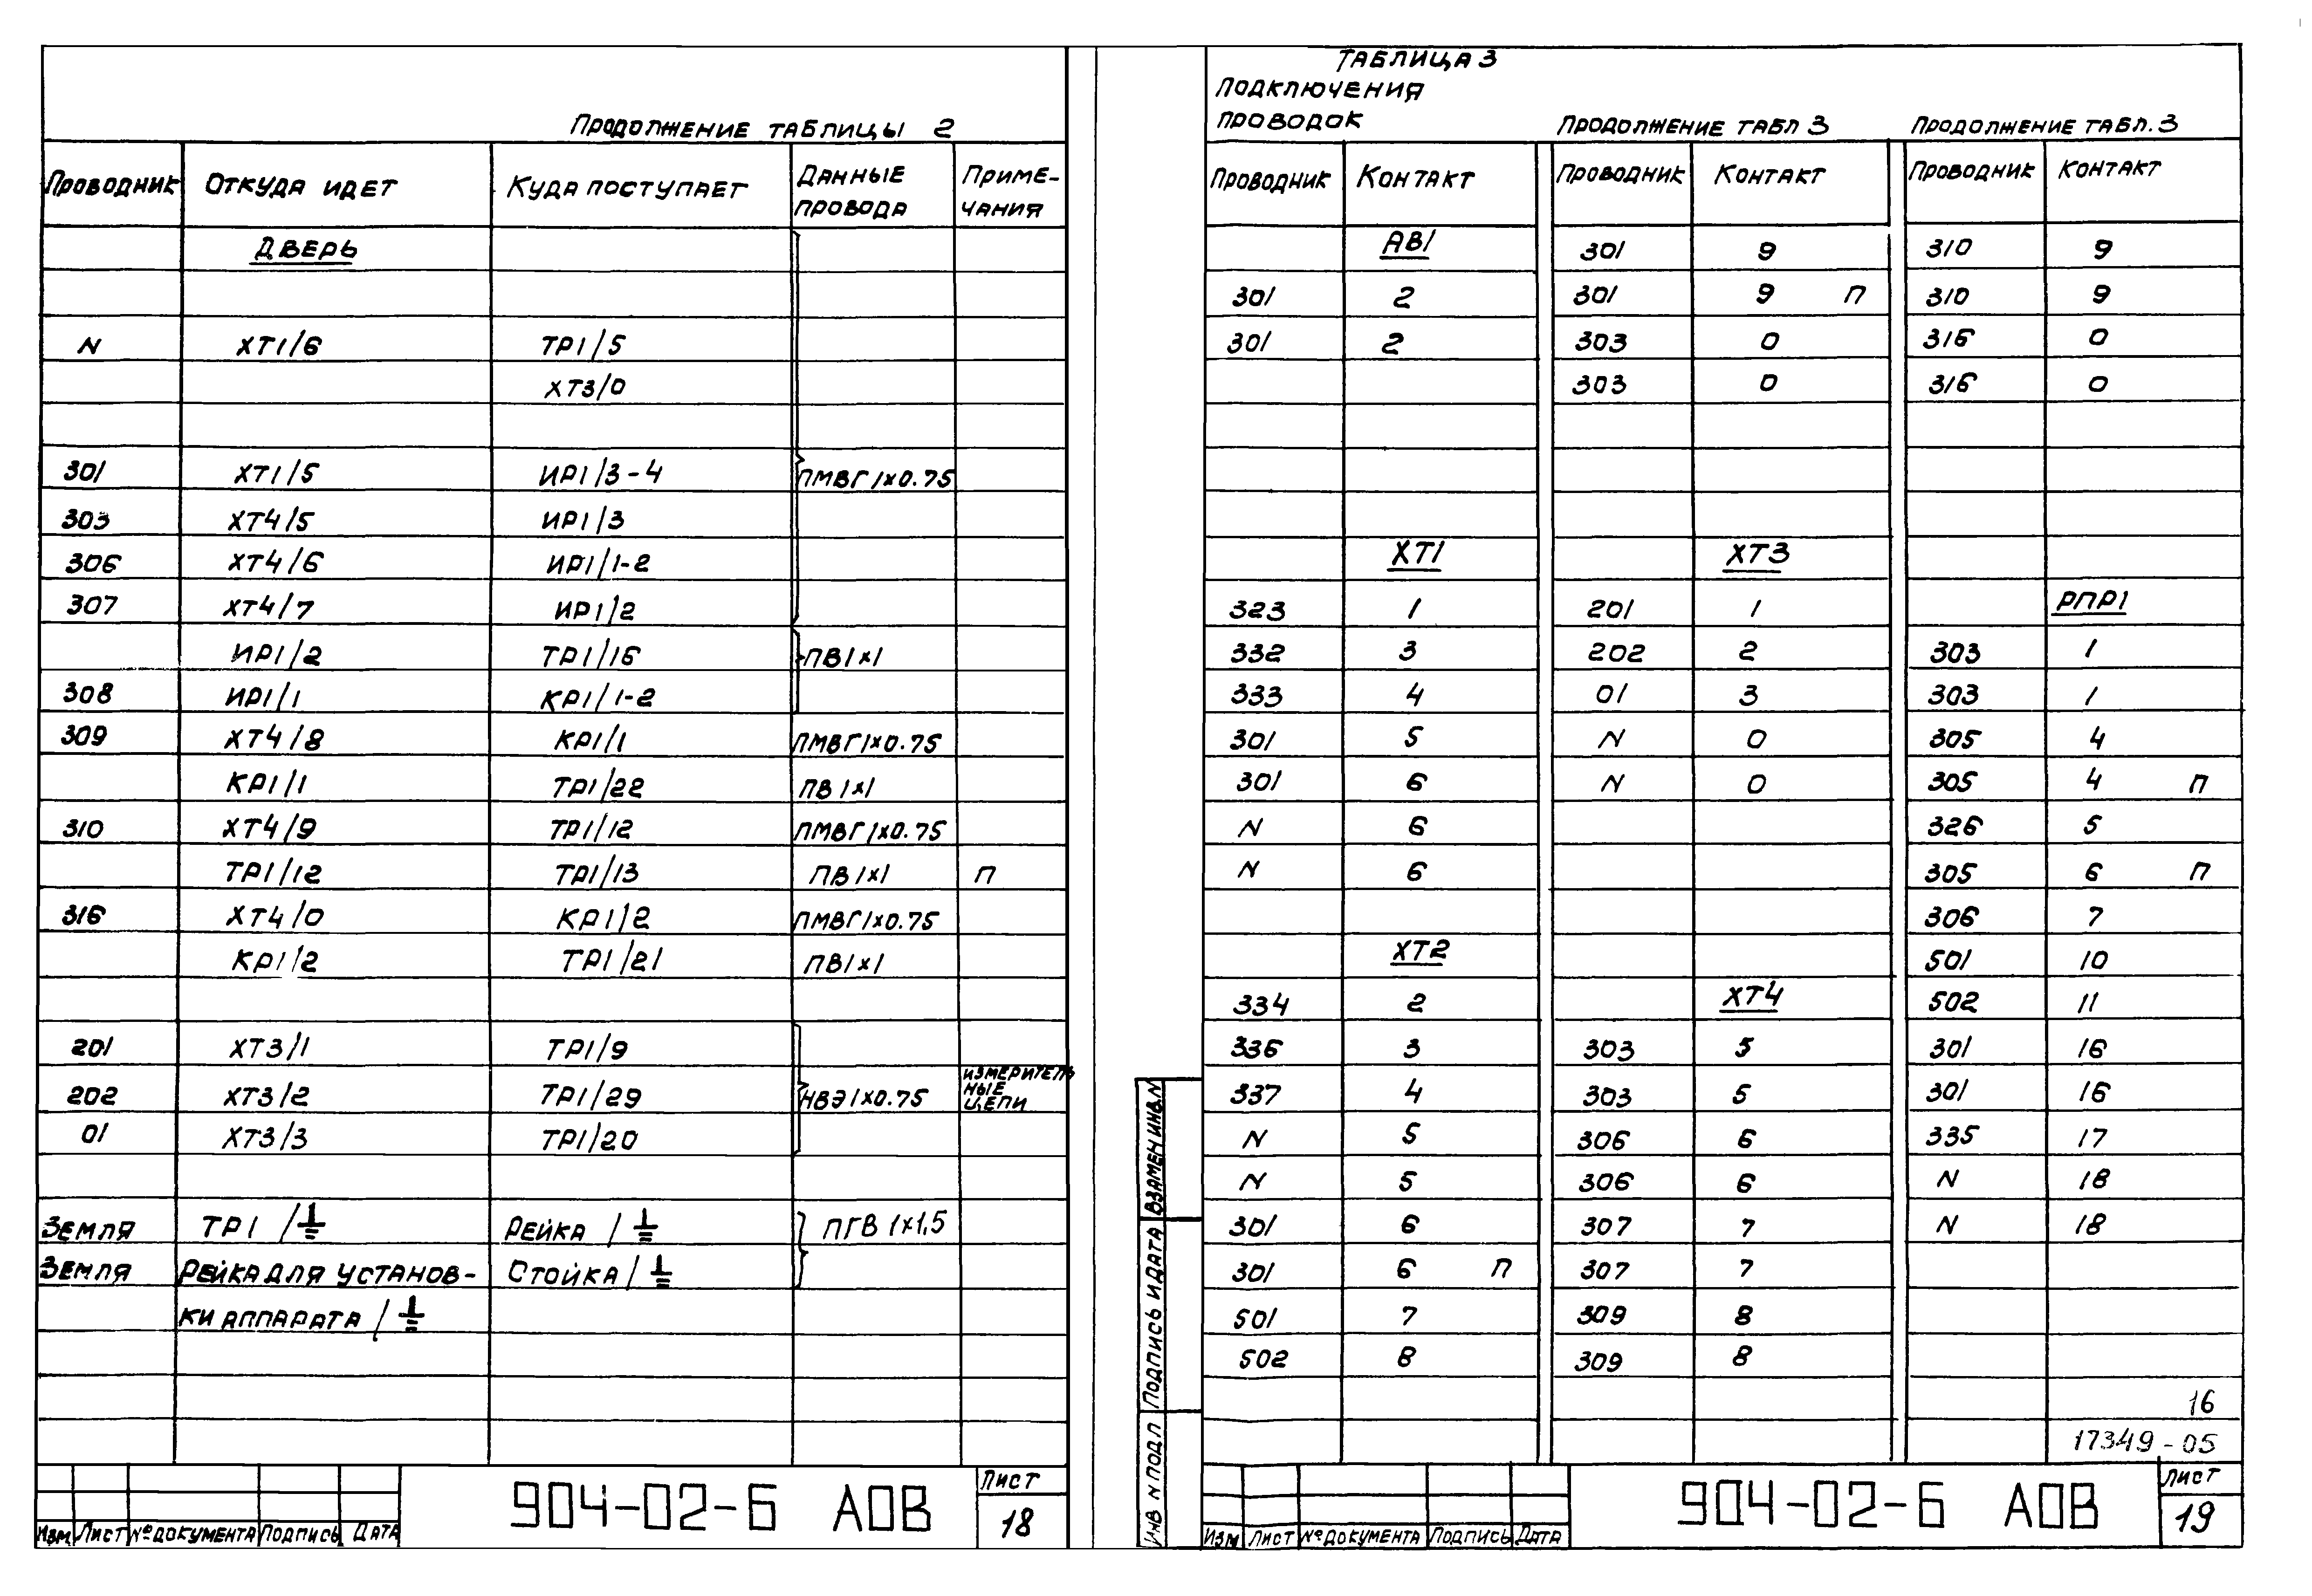 Продолжение таблицы 2
Проводник Откуда идет Куда поступает Данные провода Примечания
Дверь
N ХТ1/6 ТР1/5
ХТ3/0
301 ХТ1/5 ИР1/3-4 ПМВГ 1х0.75
303 ХТ4/5 ИР1/3
306 ХТ4/6 ИР1/1-2
307 ХТ4/7 ИР1/2
ИР1/2 ТР1/16 ПВ1х1
308 ИР1/1 КР1/1-2
309 ХТ4/8 КР1/1 ПМВГ1х0.75
КР1/1 ТР1/22 ПВ1х1
310 ХТ4/9 ТР1/12 ПМВГ1х0.75
ТР1/12 ТР1/13 ПВ1х1 П
316 ХТ4/0 КР1/2 ПМВГ1х0.75
КР1/2 ТР1/21 ПВ1х1
201 ХТ3/1 ТР1/9
202 ХТ3/2 ТР1/29 НВЭ1х0.75 Измерительные цепи
01 ХТ3/3 ТР1/20
Земля ТР1 /⏚ Рейка /⏚ ПГВ 1х1,5
Земля Рейка для установ- Стойка /⏚
ки аппарата /⏚
904-02-6 АОВ
Лист
18
Изм Лист № документа Подпись Дата
Таблица 3
Подключения
проводок
Продолжение табл 3
Продолжение табл. 3
Проводник Контакт Проводник Контакт Проводник Контакт
АВ1 301 9 310 9
301 2 301 9 П 310 9
301 2 303 0 316 0
303 0 316 0
ХТ1 ХТ3
323 1 201 1 РПР1
332 3 202 2 303 1
333 4 01 3 303 1
301 5 N 0 305 4
301 6 N 0 305 4 П
N 6 326 5
N 6 305 6 П
306 7
ХТ2 501 10
334 2 ХТ4 502 11
336 3 303 5 301 16
337 4 303 5 301 16
N 5 306 6 335 17
N 5 306 6 N 18
301 6 307 7 N 18
301 6 П 307 7
501 7 309 8
502 8 309 8
16
17349-05
904-02-6 АОВ
Лист
19
Изм Лист № документа Подпись Дата
Инв N подл Подпись и дата Взамен инв.N